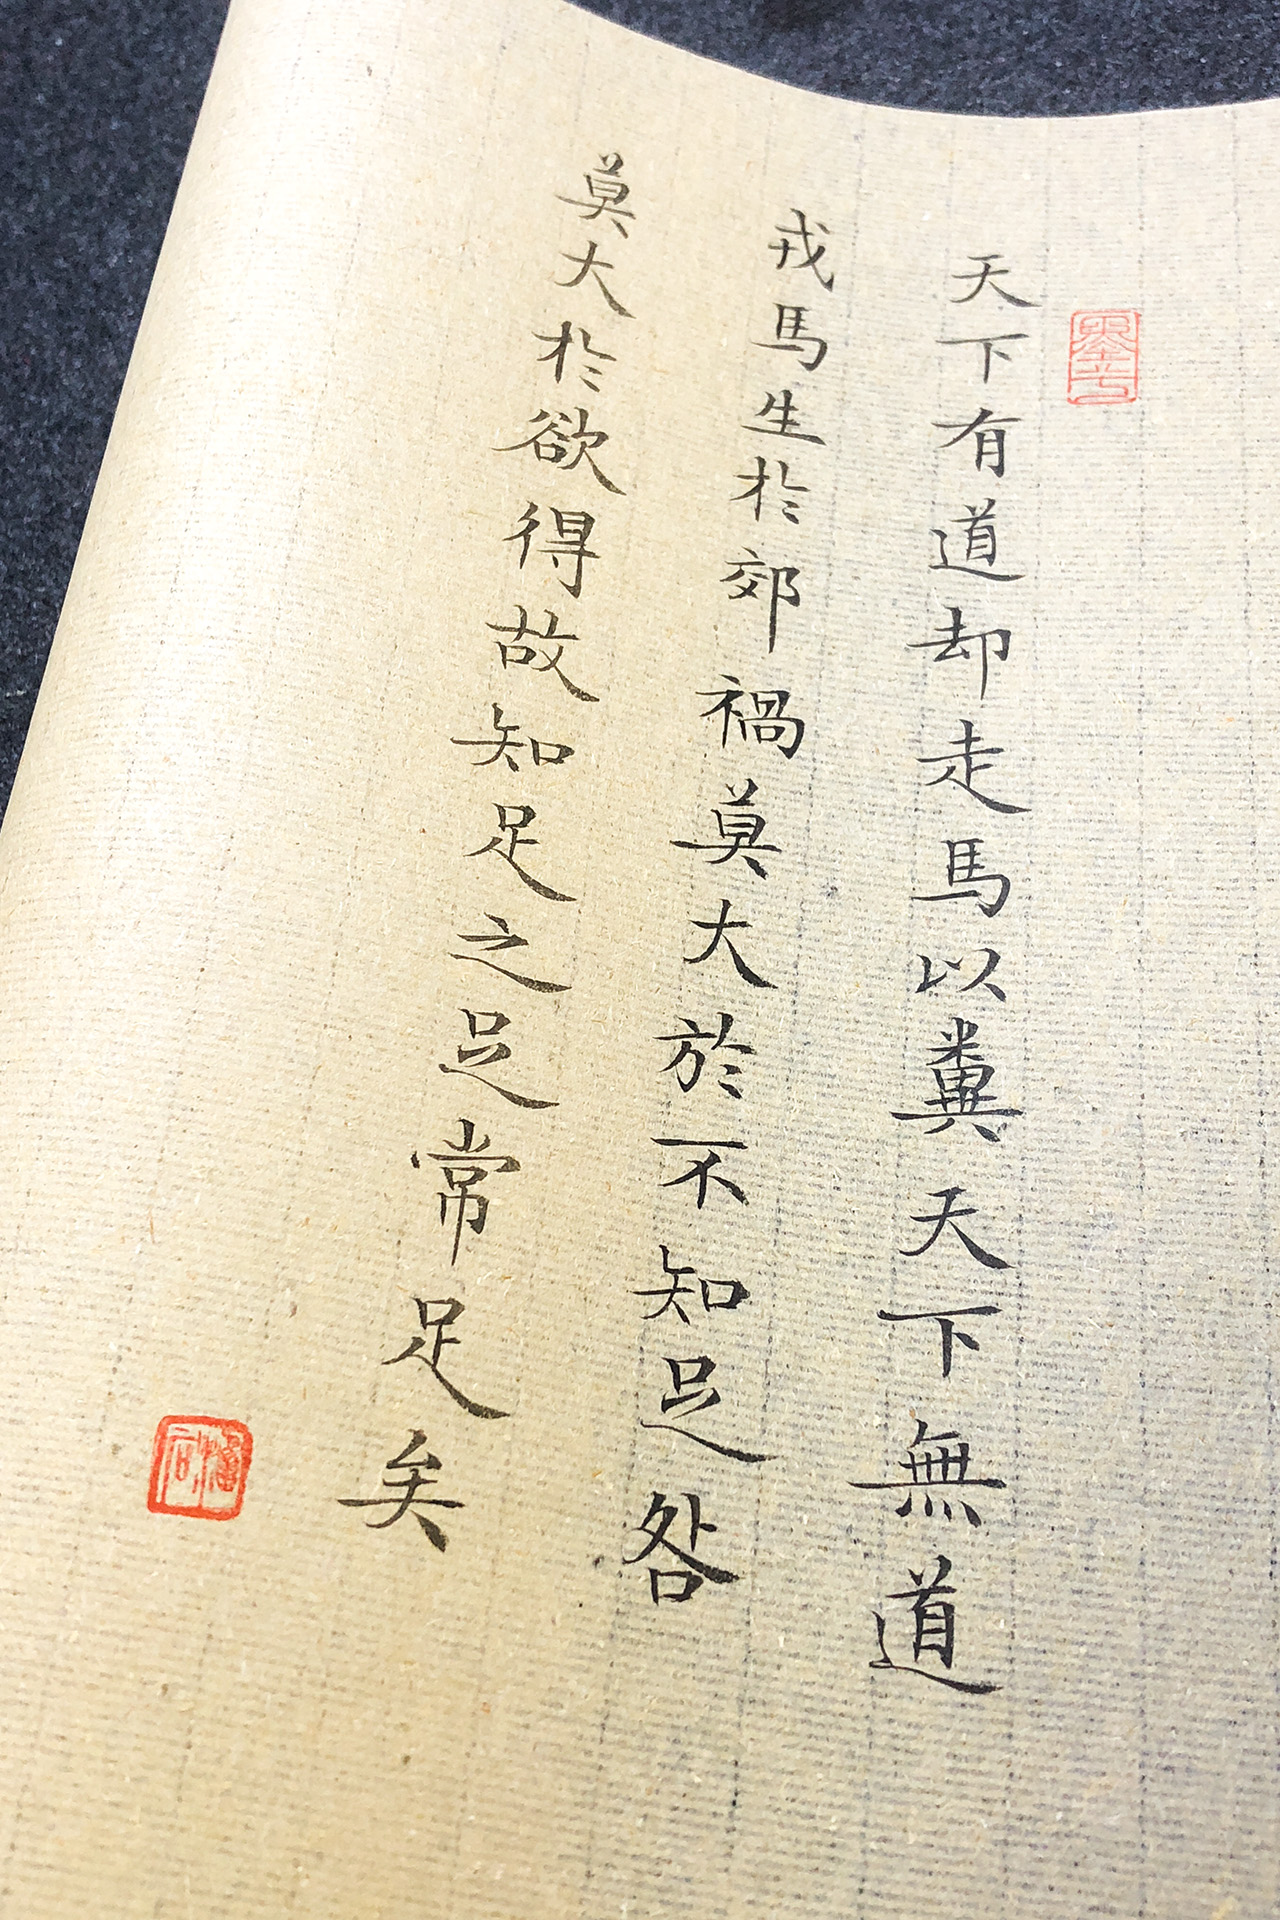 天下有道却走馬以糞天下無道
戎馬生於郊禍莫大於不知足咎
莫大於欲得故知足之足常足矣